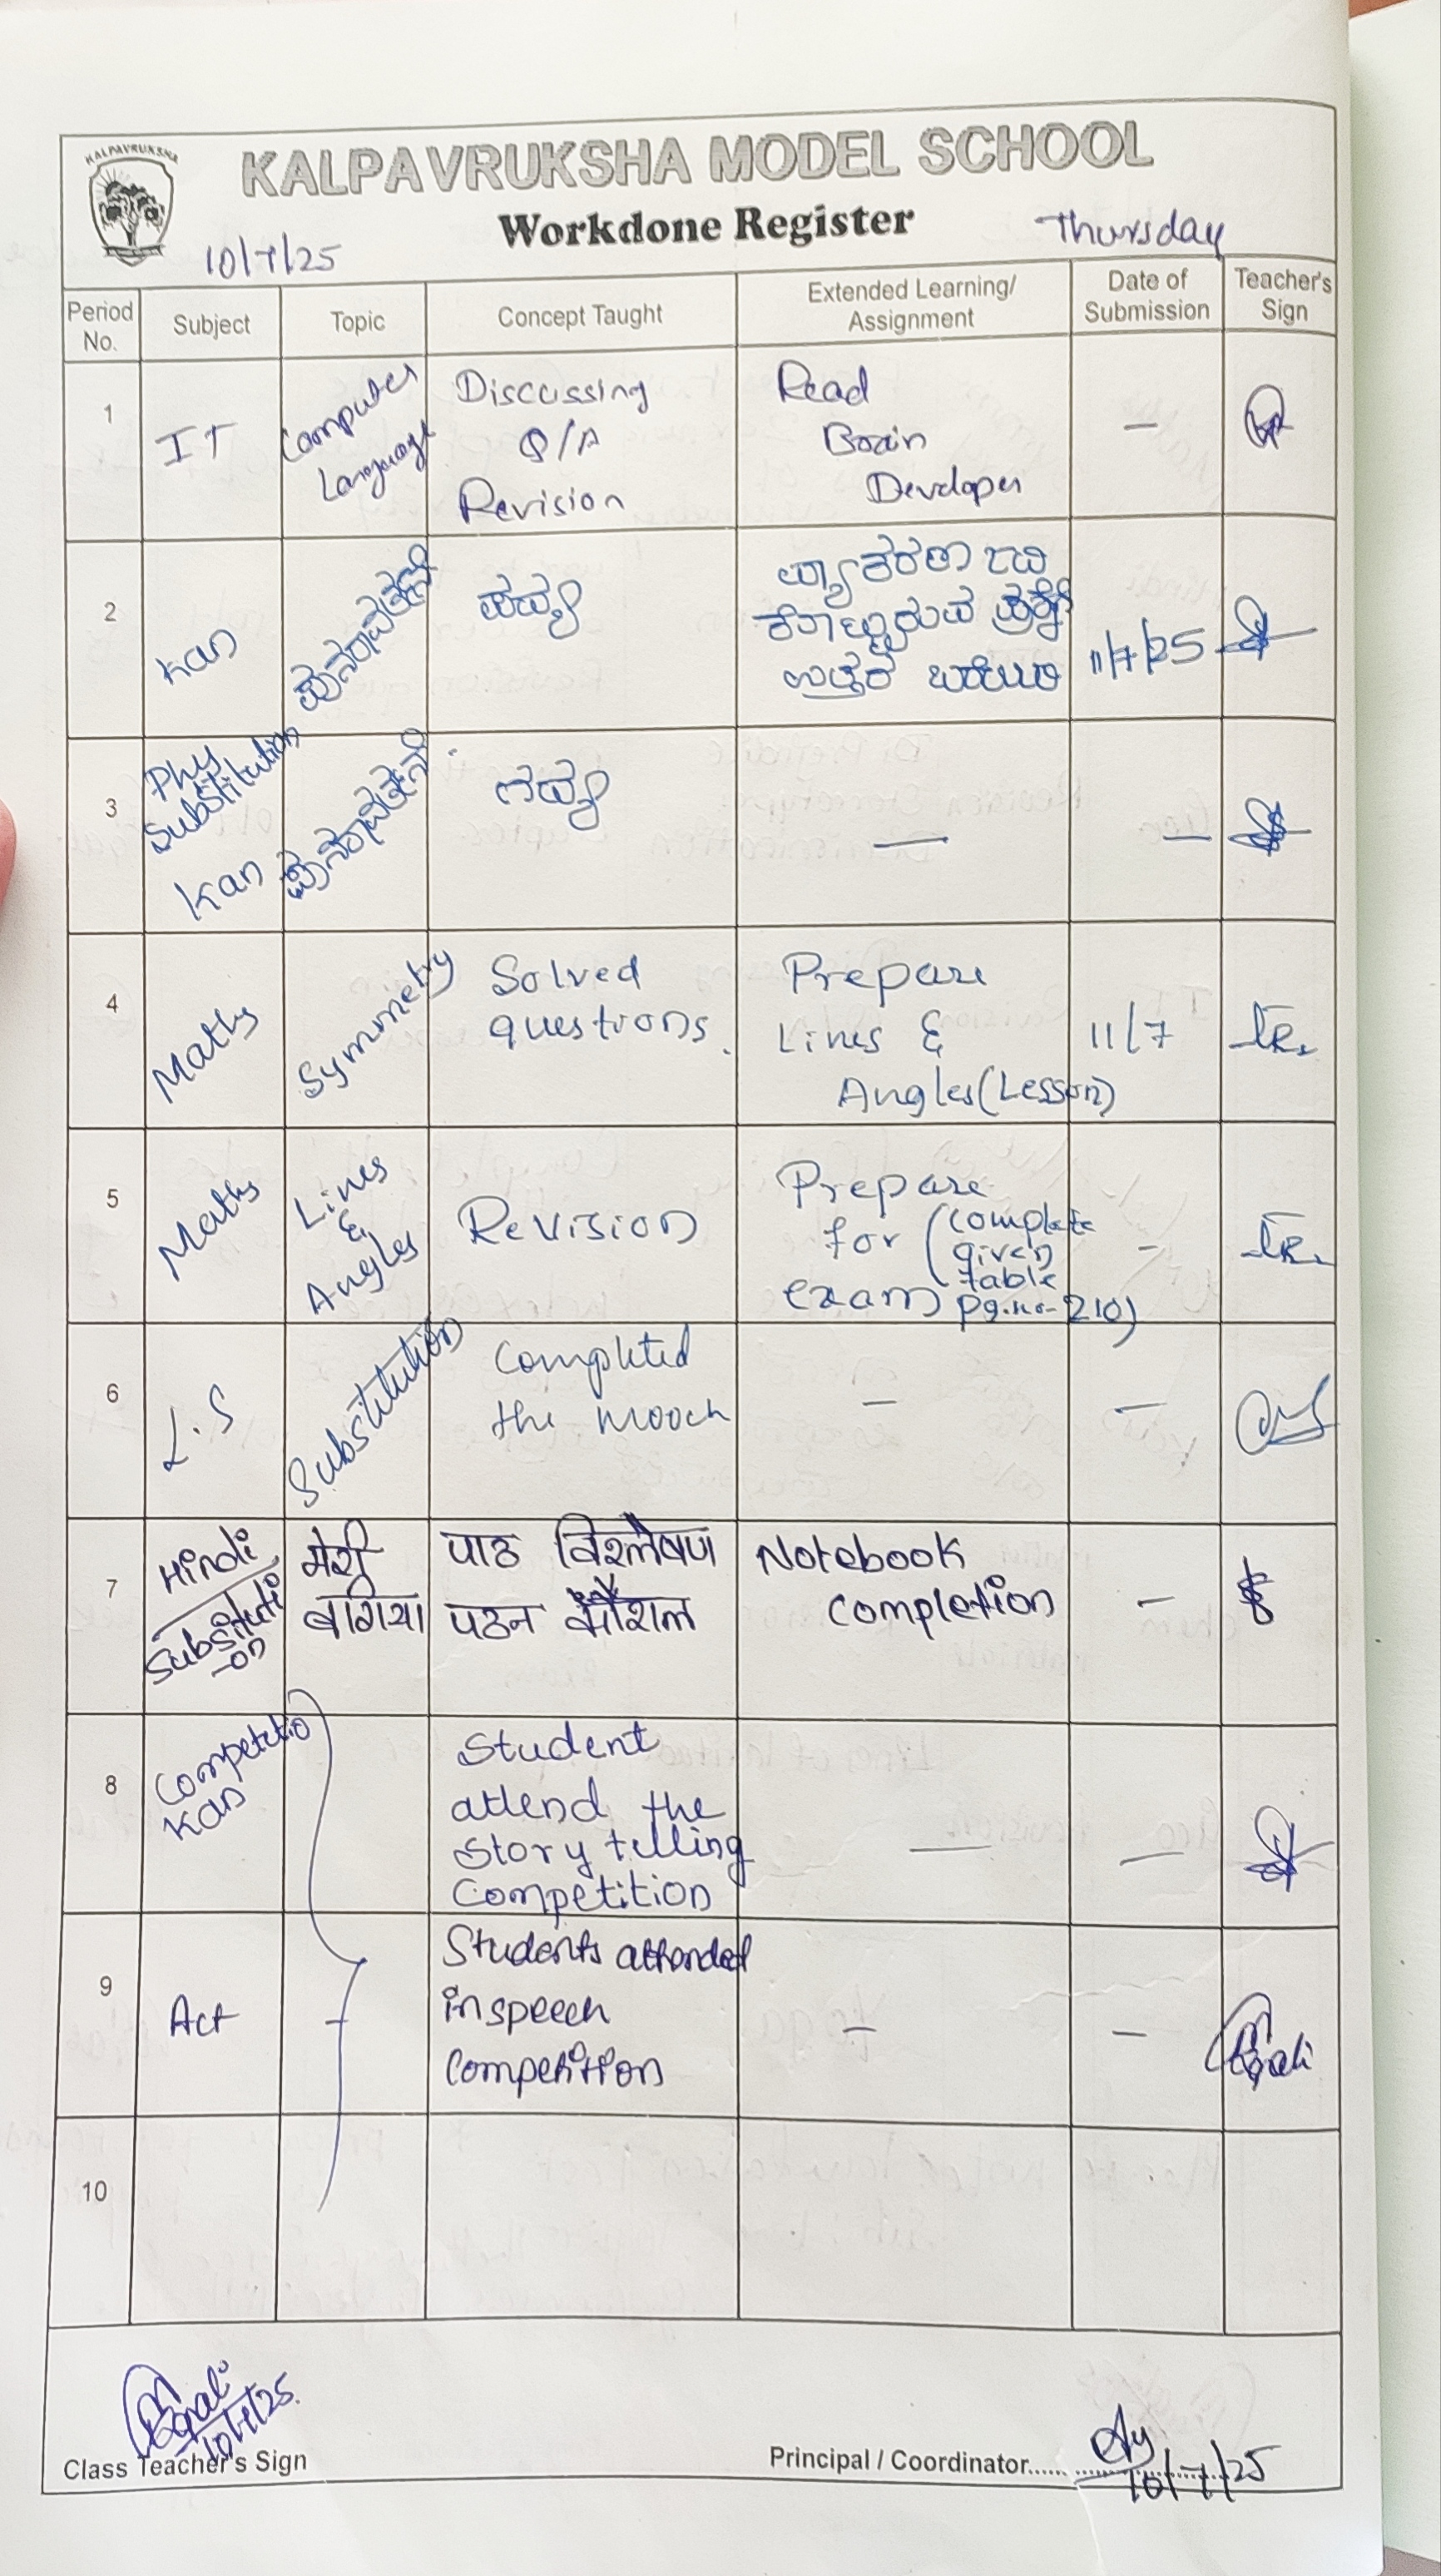 KALPAVRUKSHA
KALPAVRUKSHA MODEL SCHOOL
Workdone Register
10/7/25
Thursday
Period No.
Subject
Topic
Concept Taught
Extended Learning/
Assignment
Date of
Submission
Teacher's
Sign
1
IT
Computer
Language
Discussing
Q/A
Revision
Read
Brain
Developer
—
2
Kan
ಪದ್ಯ
ಉತ್ತರ
11/7/25
3
Phy
Substitution
Kan
ಗದ್ಯ
—
—
4
Maths
Symmetry
Solved
questions.
Prepare
Lines &
Angles (Lesson)
11/7
5
Maths
Lines
&
Angles
Revision
Prepare
for
exam
(complete
given
table
pg.no-210)
-
6
L.S
Substitution
Completed
the
—
—
7
Hindi
Substituti
-on
मेरी
बगिया
पाठ विश्लेषण
पठन कौशल
Notebook
completion
—
8
Competetio
Kan
Student
attend the
Story telling
Competition
—
—
9
Act
-
Students attended
in speech
Competition
—
—
10
10/7/25.
Class Teacher's Sign
Principal / Coordinator......
10/7/25